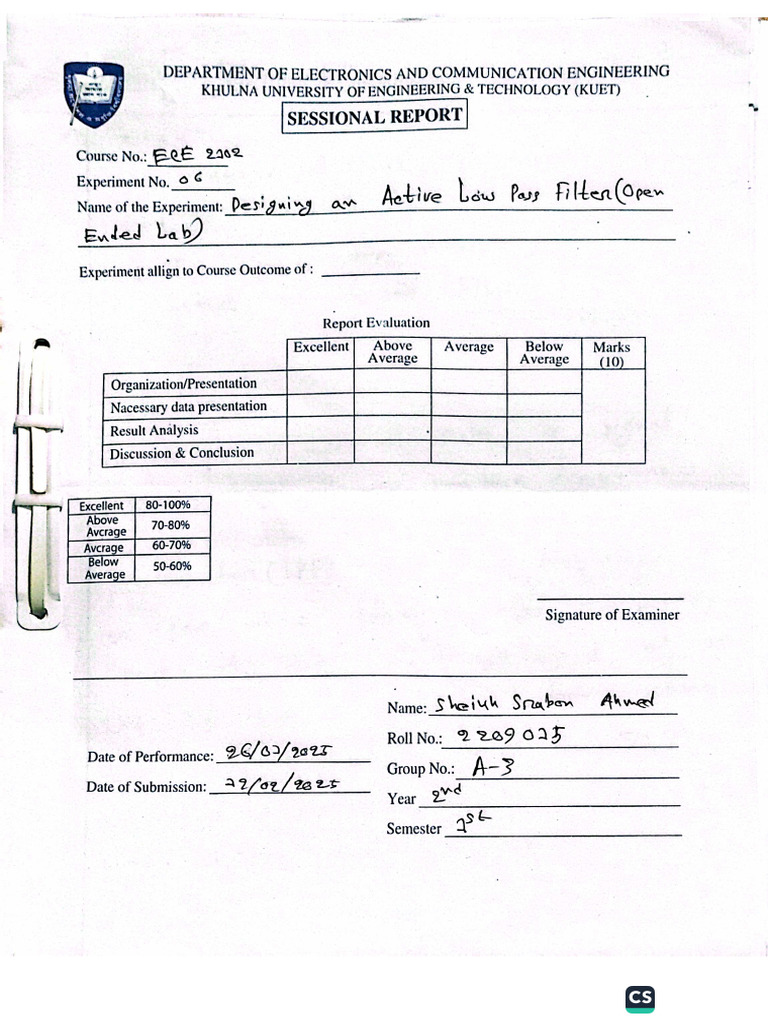 DEPARTMENT OF ELECTRONICS AND COMMUNICATION ENGINEERING
KHULNA UNIVERSITY OF ENGINEERING & TECHNOLOGY (KUET)
SESSIONAL REPORT
Course No.: ECE 2102
Experiment No. 06
Name of the Experiment: Designing an Active Low Pass Filter (Open
Ended Lab)
Experiment allign to Course Outcome of :
Report Evaluation
Excellent Above Average Average Below Average Marks (10)
Organization/Presentation
Nacessary data presentation
Result Analysis
Discussion & Conclusion
Excellent 80-100%
Above Avcrage 70-80%
Avcrage 60-70%
Below Average 50-60%
Signature of Examiner
Name: Sheikh Srabon Ahmed
Roll No.: 2209015
Date of Performance: 26/01/2025
Group No.: A-3
Date of Submission: /02/2025
Year 2nd
Semester 1st
CS